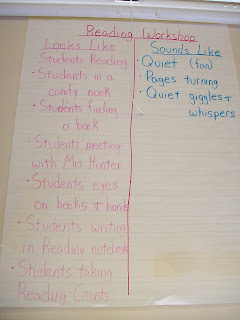 Reading Workshop
Looks Like
Students Reading
• Students in a
comfy nook
• Students finding
a book
• Students meeting
with Mrs Hunter
• Students eyes
on books + hands
• Students writing
in Reading notebook
• Students taking
Reading Counts
Sounds Like
• Quiet (fan)
• Pages turning
• Quiet giggles +
whispers